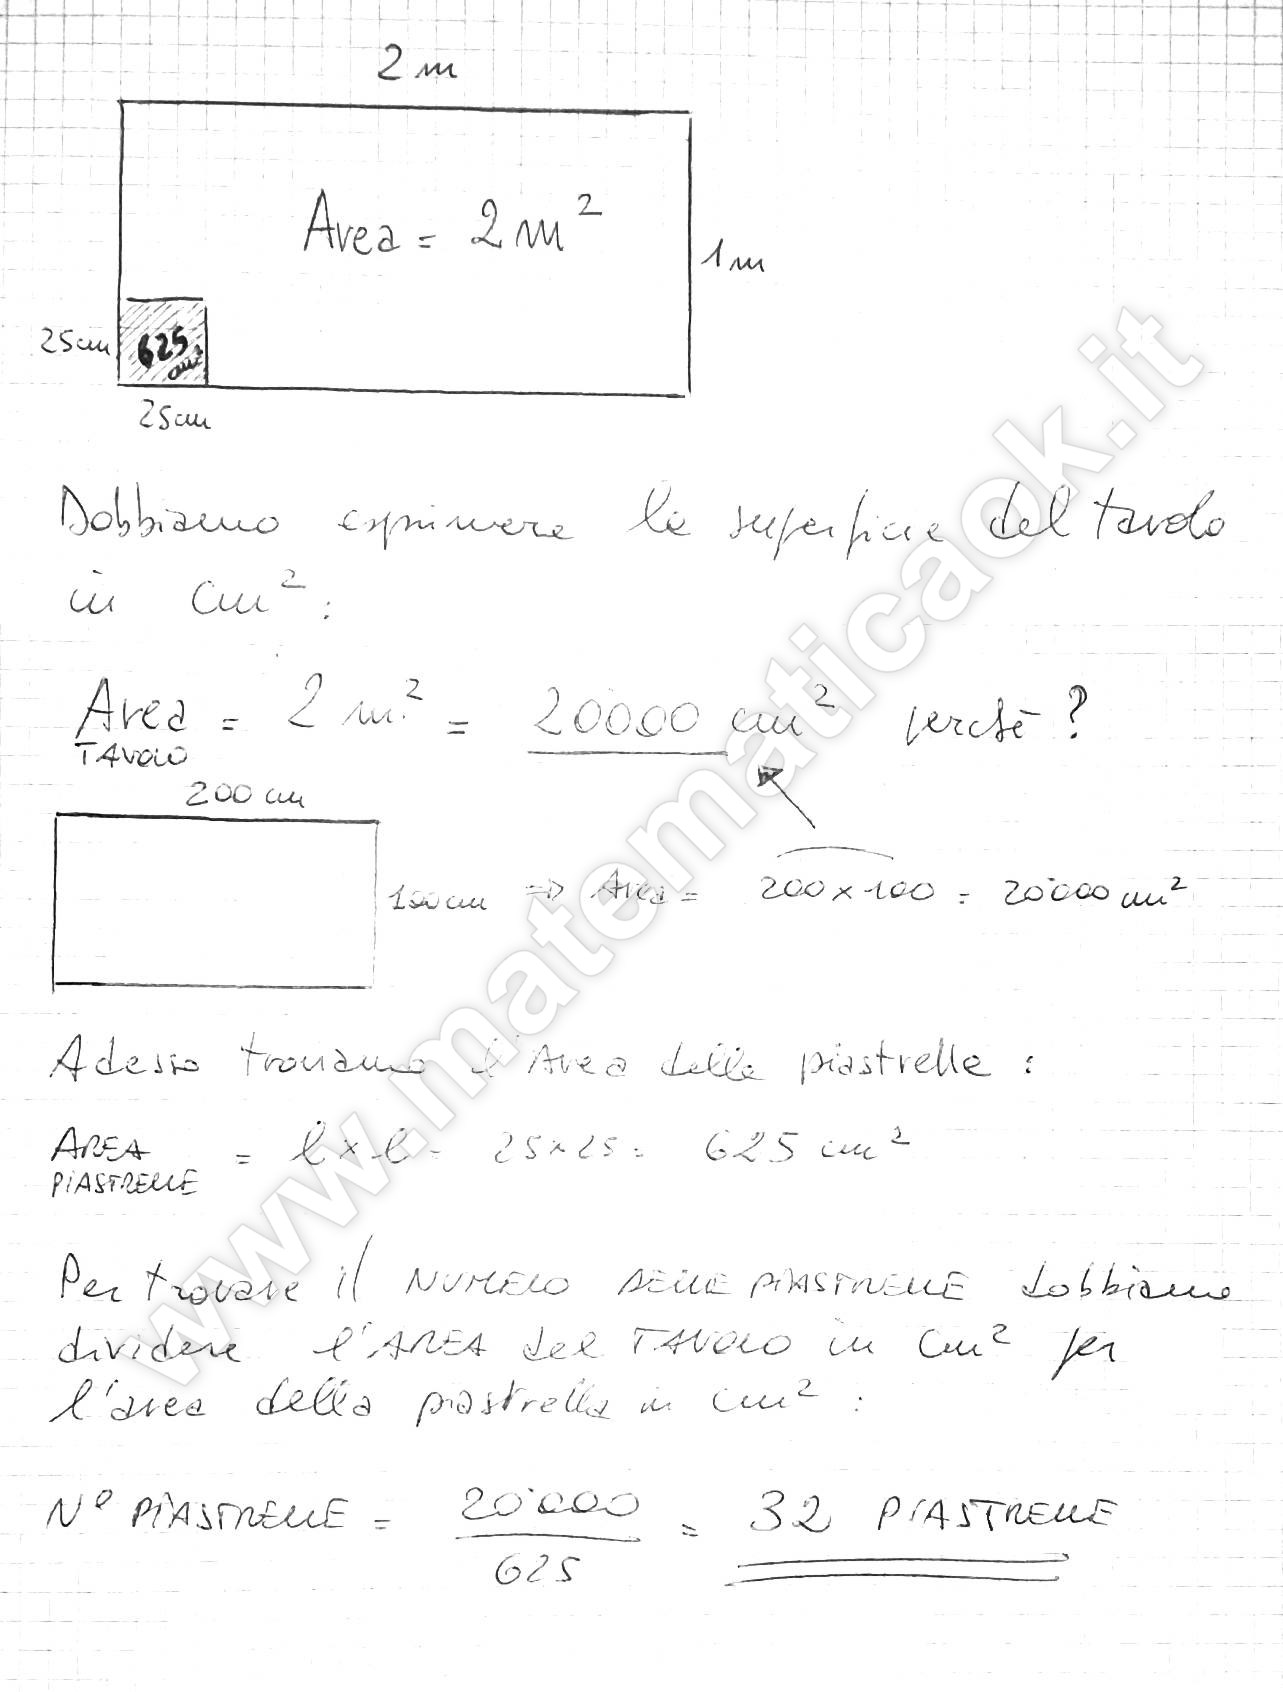 2 m
Area = 2 m²
1 m
25 cm
625
cm²
25 cm
Dobbiamo esprimere la superficie del tavolo
in cm²:
Area = 2 m² = 20000 cm² perchè?
TAVOLO
200 cm
100 cm => Area = 200 x 100 = 20'000 cm²
Adesso troviamo l'Area delle piastrelle:
AREA = l x l = 25 x 25 = 625 cm²
PIASTRELLE
Per trovare il NUMERO DELLE PIASTRELLE dobbiamo
dividere l'AREA del TAVOLO in cm² per
l'area della piastrella in cm²:
N° PIASTRELLE = 20'000 = 32 PIASTRELLE
625
www.matematicaok.it